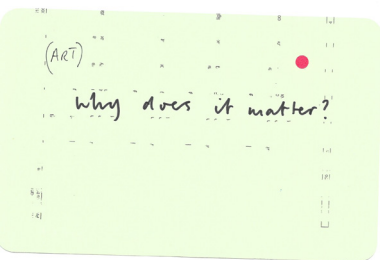 (ART)
Why does it matter?